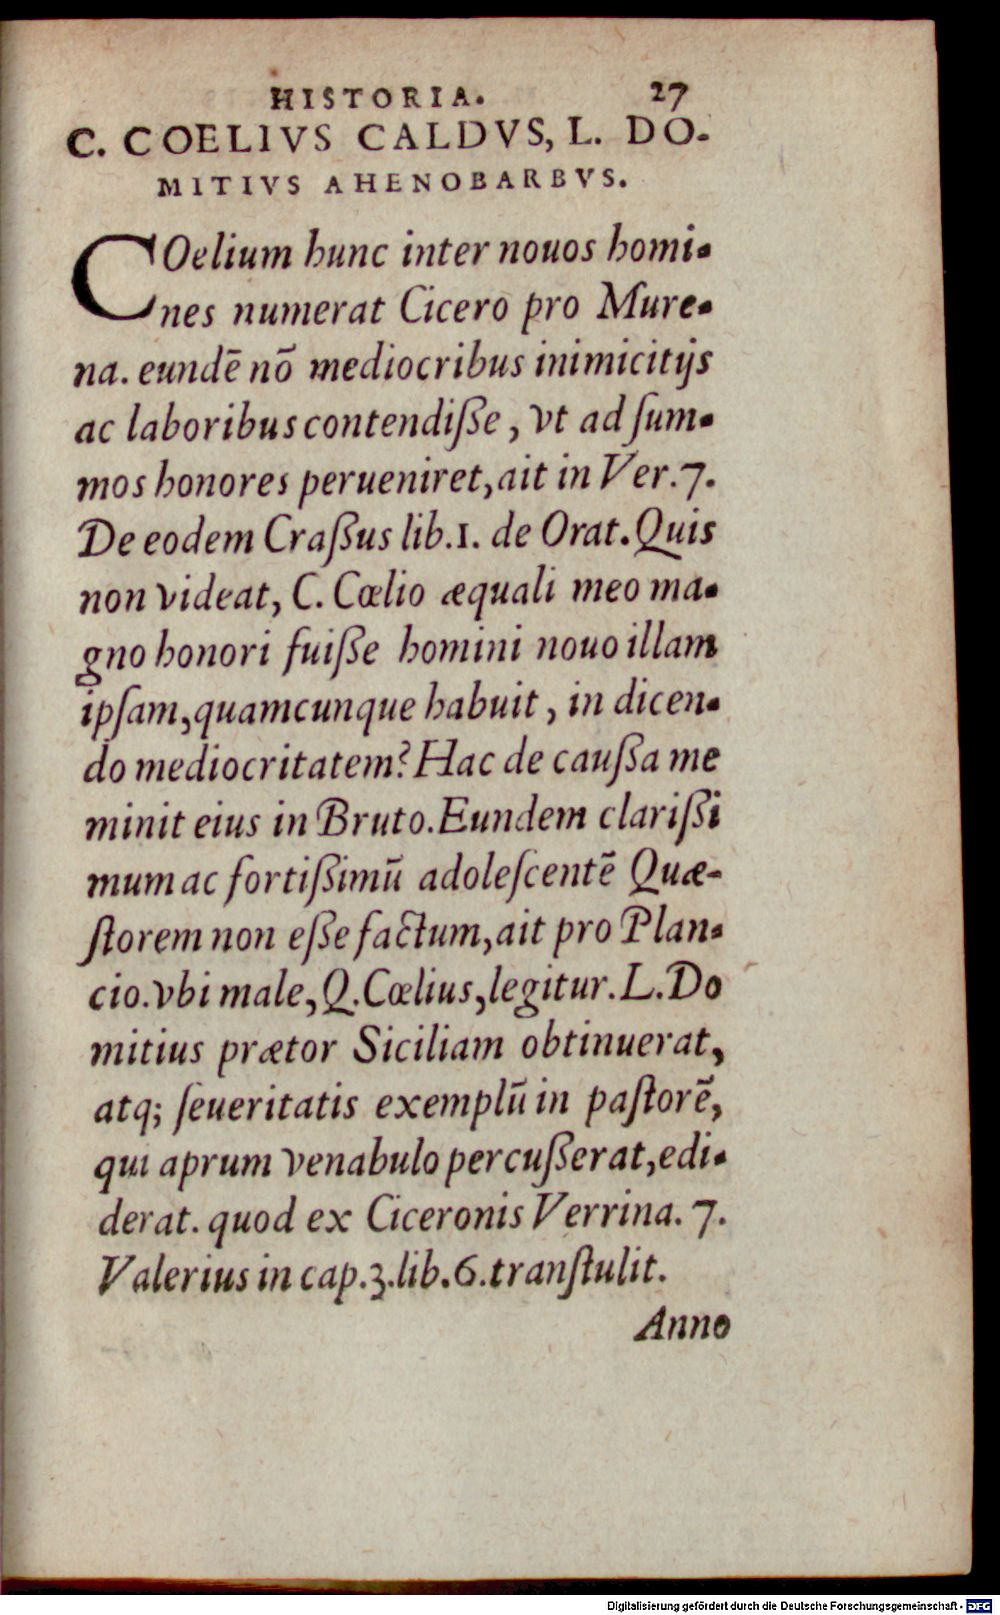 HISTORIA. 27
C. COELIVS CALDVS, L. DO-
MITIVS AHENOBARBVS.
COelium hunc inter nouos homi-
nes numerat Cicero pro Mure-
na. eundē nō mediocribus inimicitijs
ac laboribus contendiſſe, vt ad ſum-
mos honores perueniret, ait in Ver. 7.
De eodem Craſſus lib. 1. de Orat. Quis
non videat, C. Cœlio æquali meo ma-
gno honori fuiſſe homini nouo illam
ipſam, quamcunque habuit, in dicen-
do mediocritatem? Hac de cauſſa me
minit eius in Bruto. Eundem clariſſi
mum ac fortiſſimū adoleſcentē Quæ-
ſtorem non eſſe factum, ait pro Plan-
cio. vbi male, Q. Cœlius, legitur. L. Do
mitius prætor Siciliam obtinuerat,
atq; ſeueritatis exemplū in paſtorē,
qui aprum venabulo percuſſerat, edi-
derat. quod ex Ciceronis Verrina. 7.
Valerius in cap. 3. lib. 6. tranſtulit.
Anno
Digitalisierung gefördert durch die Deutsche Forschungsgemeinschaft - DFG